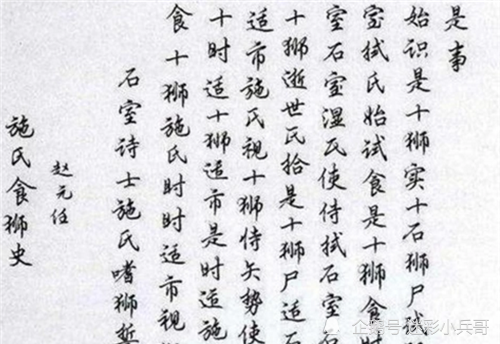 施氏食狮史
赵元任
石室诗士施氏嗜狮誓
食十狮施氏时时适市视
十时适十狮适市是时适施
适市施氏视十狮恃矢势使
十狮逝世氏拾是十狮尸适石
室石室湿氏使侍拭石室
室拭氏始试食是十狮食时
始识是十狮实十石狮尸试
是事
企鹅号 迷彩小兵哥